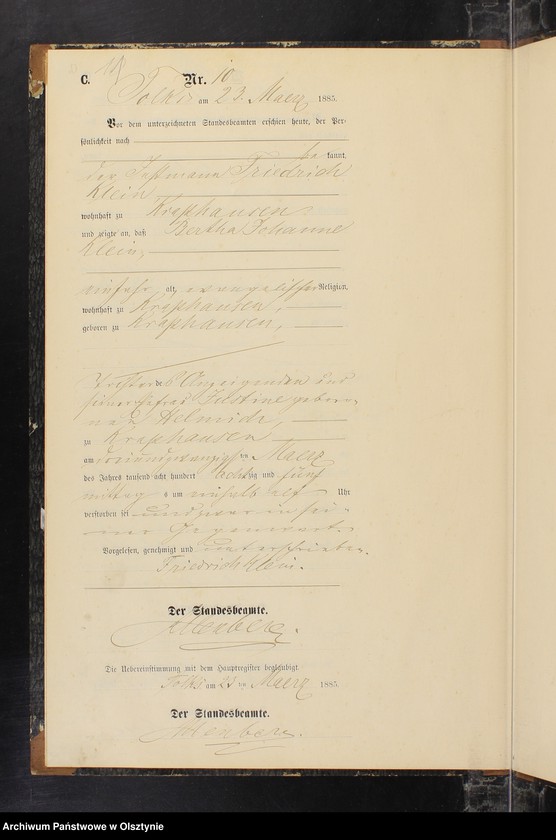 C.
Nr. 10
Tolks am 23. Maerz 1885.
Vor dem unterzeichneten Standesbeamten erschien heute, der Per-
sönlichkeit nach
be kannt,
der Friedrich
Klein
wohnhaft zu Kraphausen
und zeigte an, daß Bertha Johanne
Klein,
alt, evangelischer Religion,
wohnhaft zu Kraphausen,
geboren zu Kraphausen,
Tochter des Anzeigenden und
seiner Ehefrau gebore-
nen Helmich,
zu Kraphausen
am dreiundzwanzigsten Maerz
des Jahres tausend acht hundert achtzig und fünf
mittag s um einhalb elf Uhr
verstorben sei und zwar in sei-
ner Gegenwart.
Vorgelesen, genehmigt und unterschrieben.
Friedrich Klein.
Der Standesbeamte.
Die Uebereinstimmung mit dem Hauptregister beglaubigt.
Tolks am 23 ten Maerz 1885.
Der Standesbeamte.
Archiwum Państwowe w Olsztynie